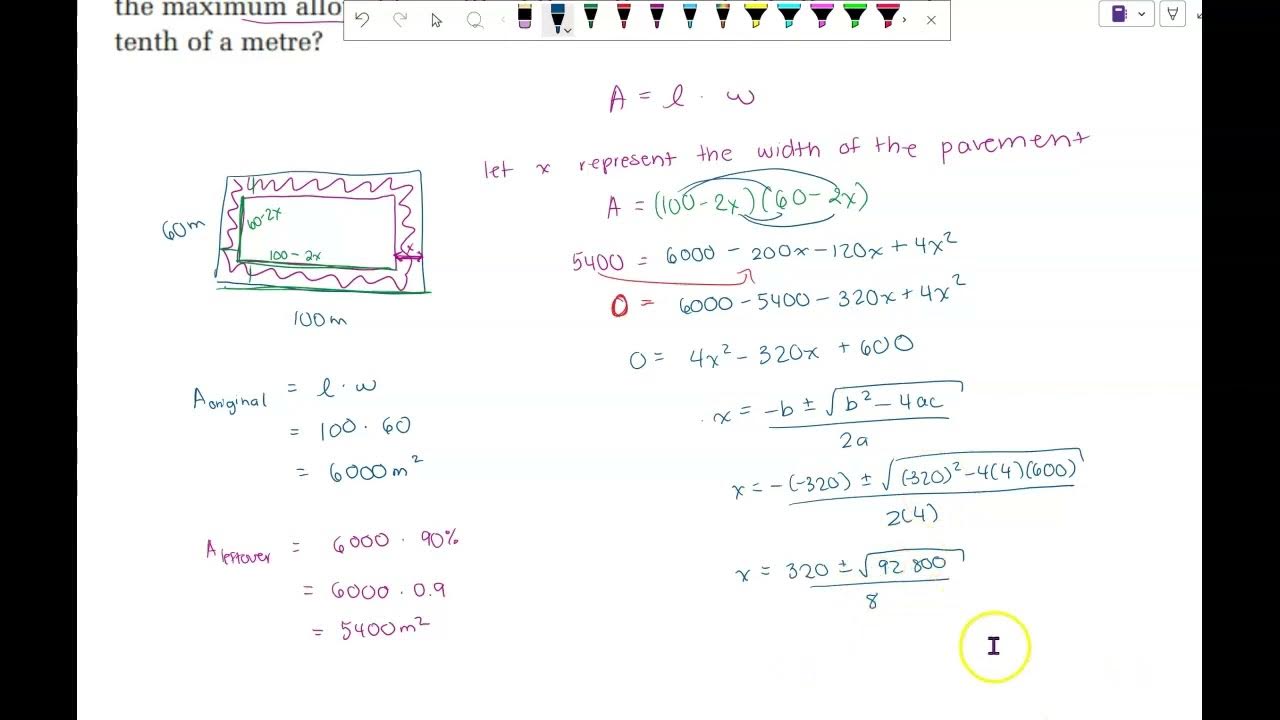 the maximum allo
tenth of a metre?
A = l · w
let x represent the width of the pavement
A = (100 - 2x)(60 - 2x)
5400 = 6000 - 200x - 120x + 4x²
0 = 6000 - 5400 - 320x + 4x²
0 = 4x² - 320x + 600
x = -b ± √b² - 4ac
2a
x = -(-320) ± √(-320)² - 4(4)(600)
2(4)
x = 320 ± √92 800
8
60m
60-2x
x
100 - 2x
100m
A original = l · w
= 100 · 60
= 6000m²
A leftover = 6000 · 90%
= 6000 · 0.9
= 5400m²